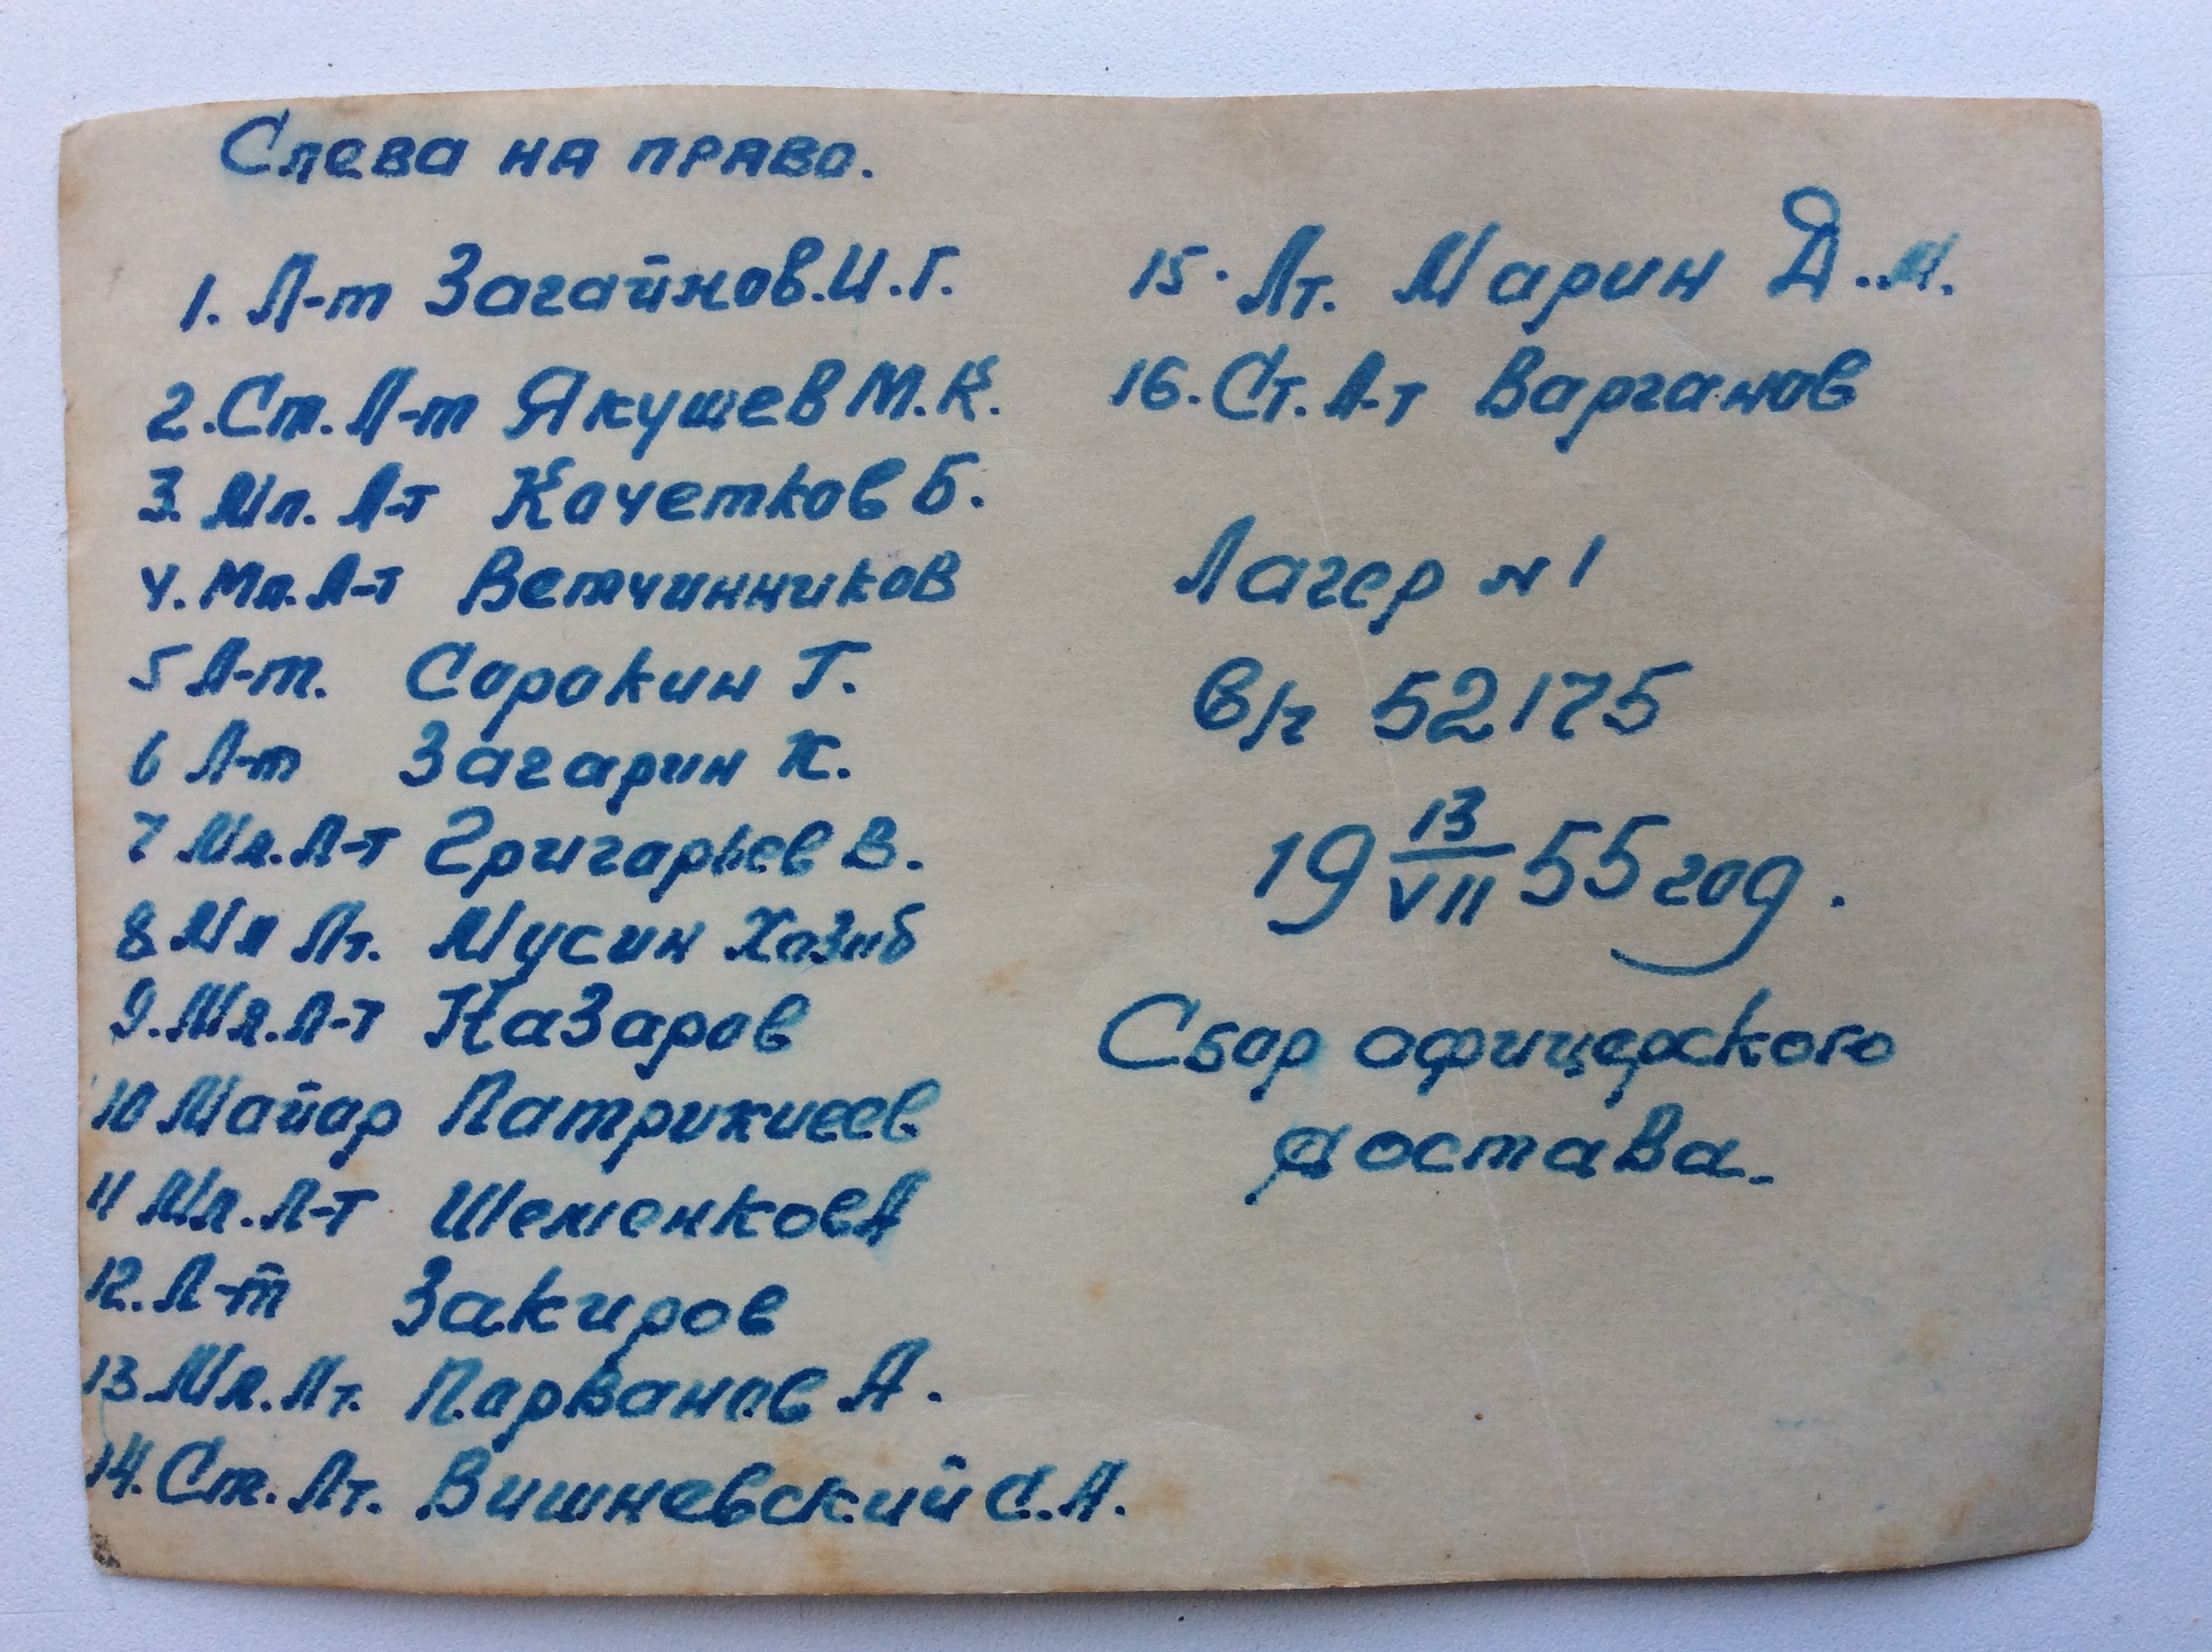 Слева на право.
1. Л-т Загайнов.И.Г.
2. Ст. Л-т Якушев М.К.
3. Мл. Л-т Качетков Б.
4. Мл. Л-т Ветчинников
5 Л-т. Сорокин Г.
6 Л-т Загарин К.
7 Мл. Л-т Григарьев В.
8 Мл Лт. Мусин Хазиб
9. Мл. Л-т Назаров
10 Майор Патрикиеев
11 Мл. Л-т Шеменков А
12. Л-т Закиров
13. Мл. Лт. Парванов А.
14. Ст. Лт. Вишневский С.А.
15. Лт. Марин Д.М.
16. Ст. Л-т Варганов
Лагер N 1
в/ч 52175
19 13/VII 55 год.
Сбор офицерского
состава.